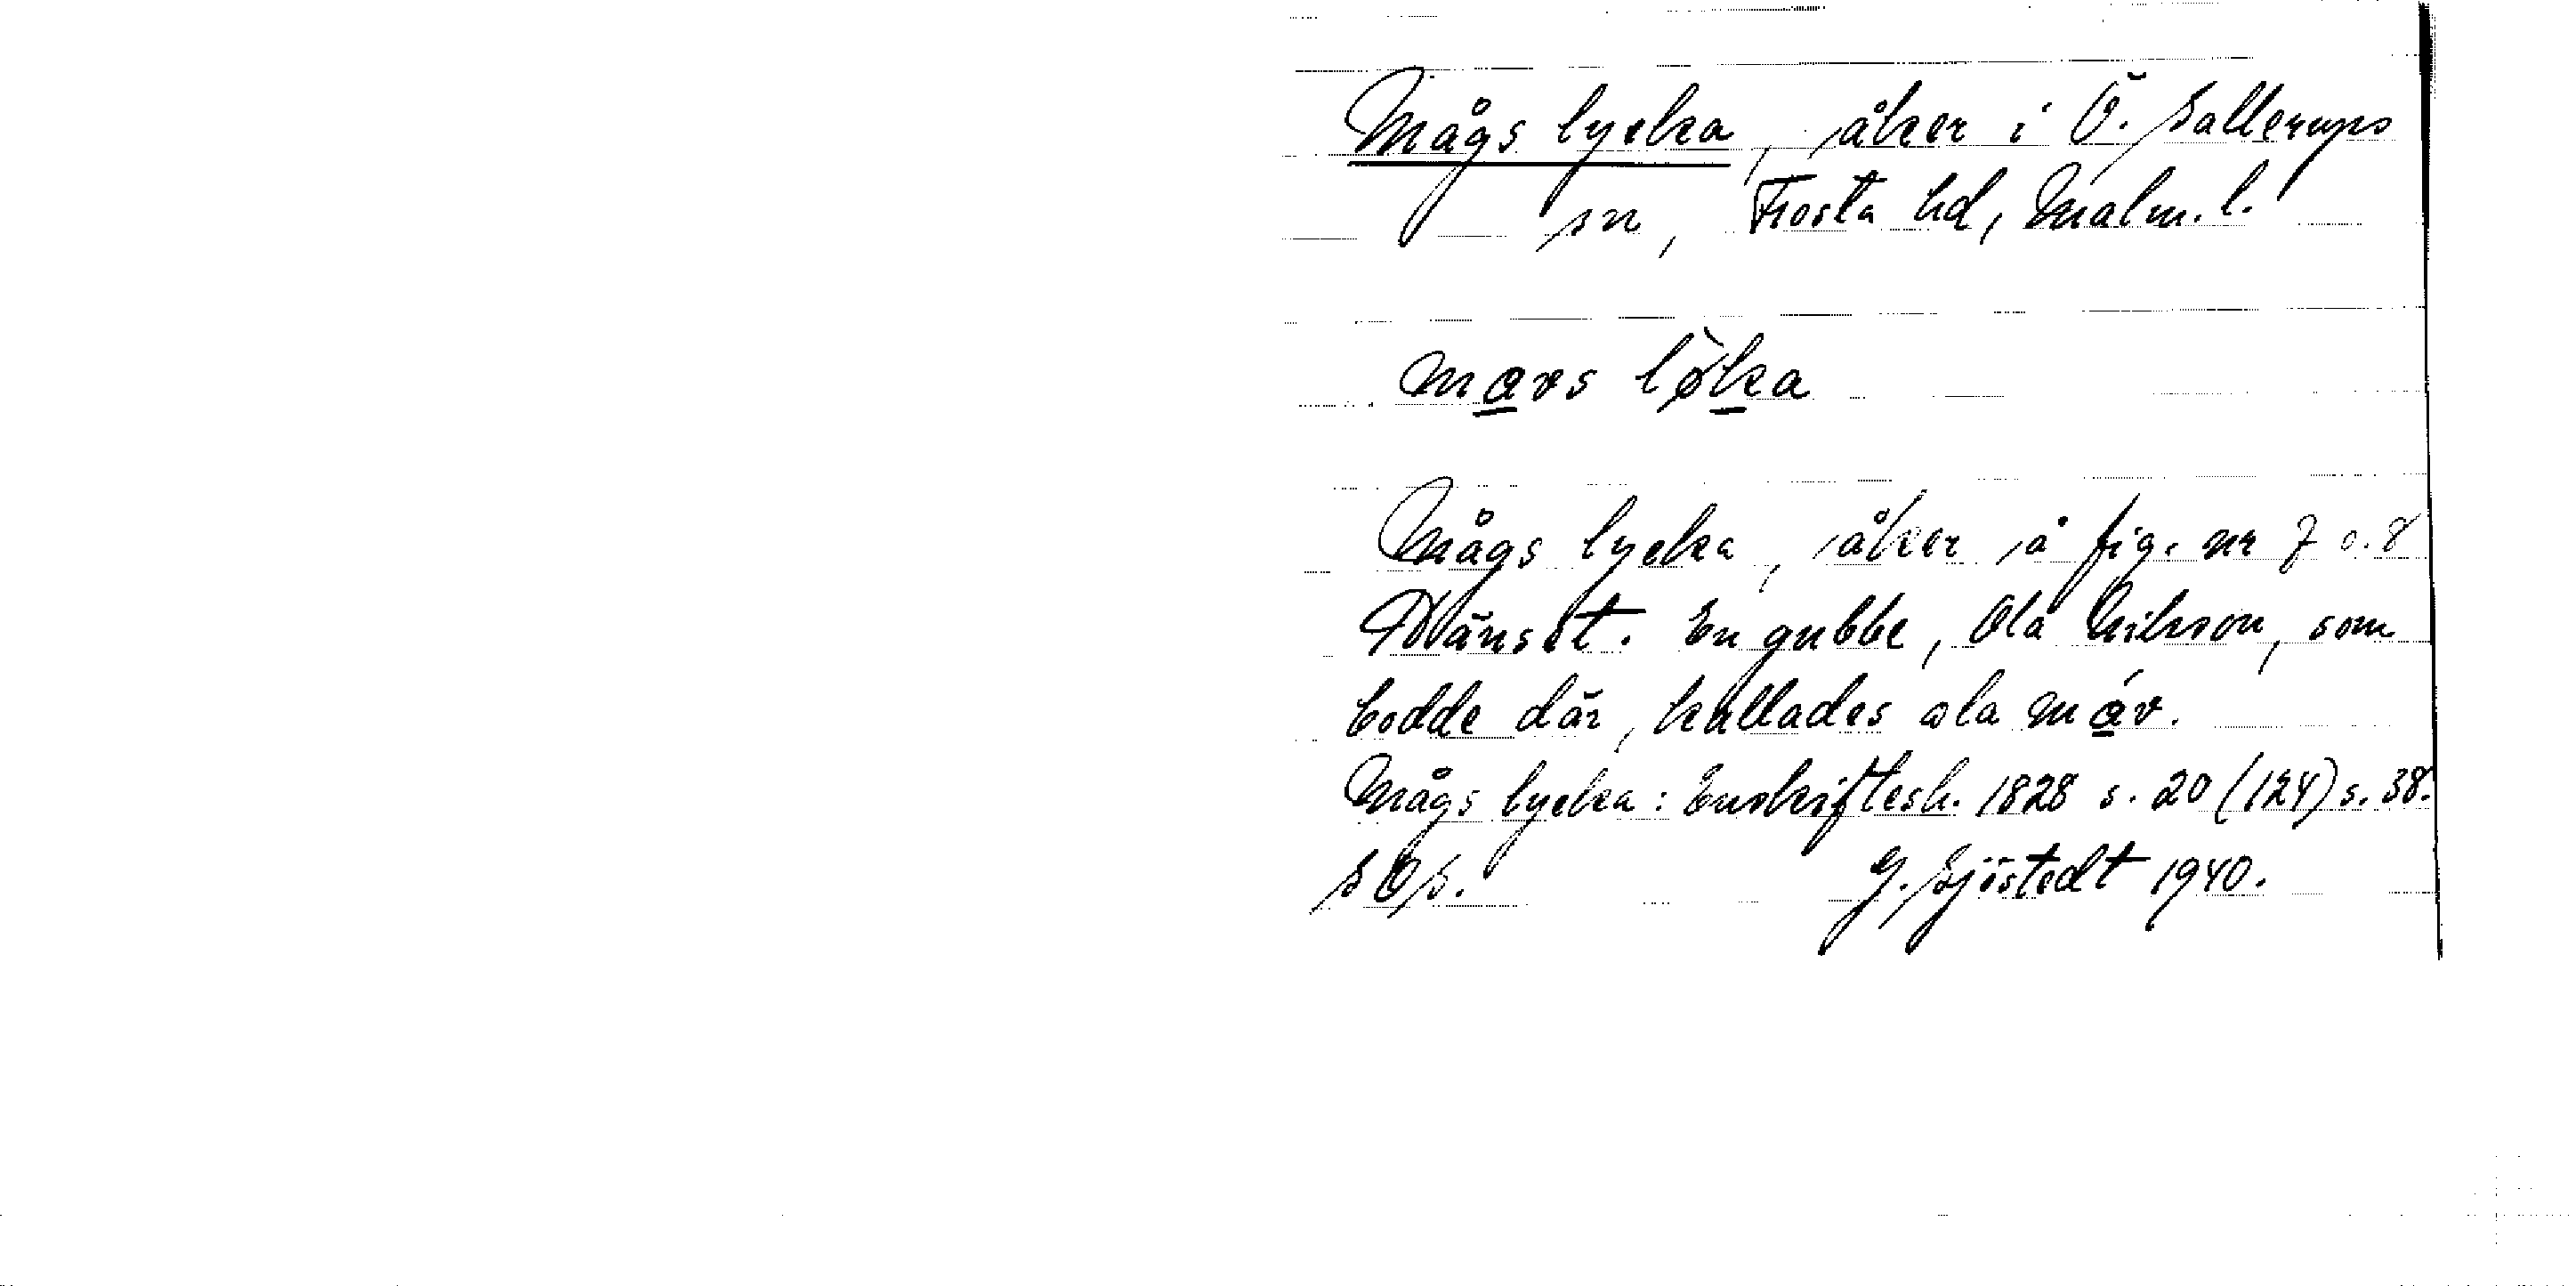 Mågs lycka, åker i Ö. Sallerups
sn, Frosta hd, Malm. l.
mavs lø̀ka
Mågs lycka, åker å fig. nr 7 o. 8
En gubbe, Ola Nilsson, som
bodde där, kallades ola máv.
Mågs lycka: Enskiftesh. 1828 s. 20 (124) s. 38.
SOS. G. Sjöstedt 1940.